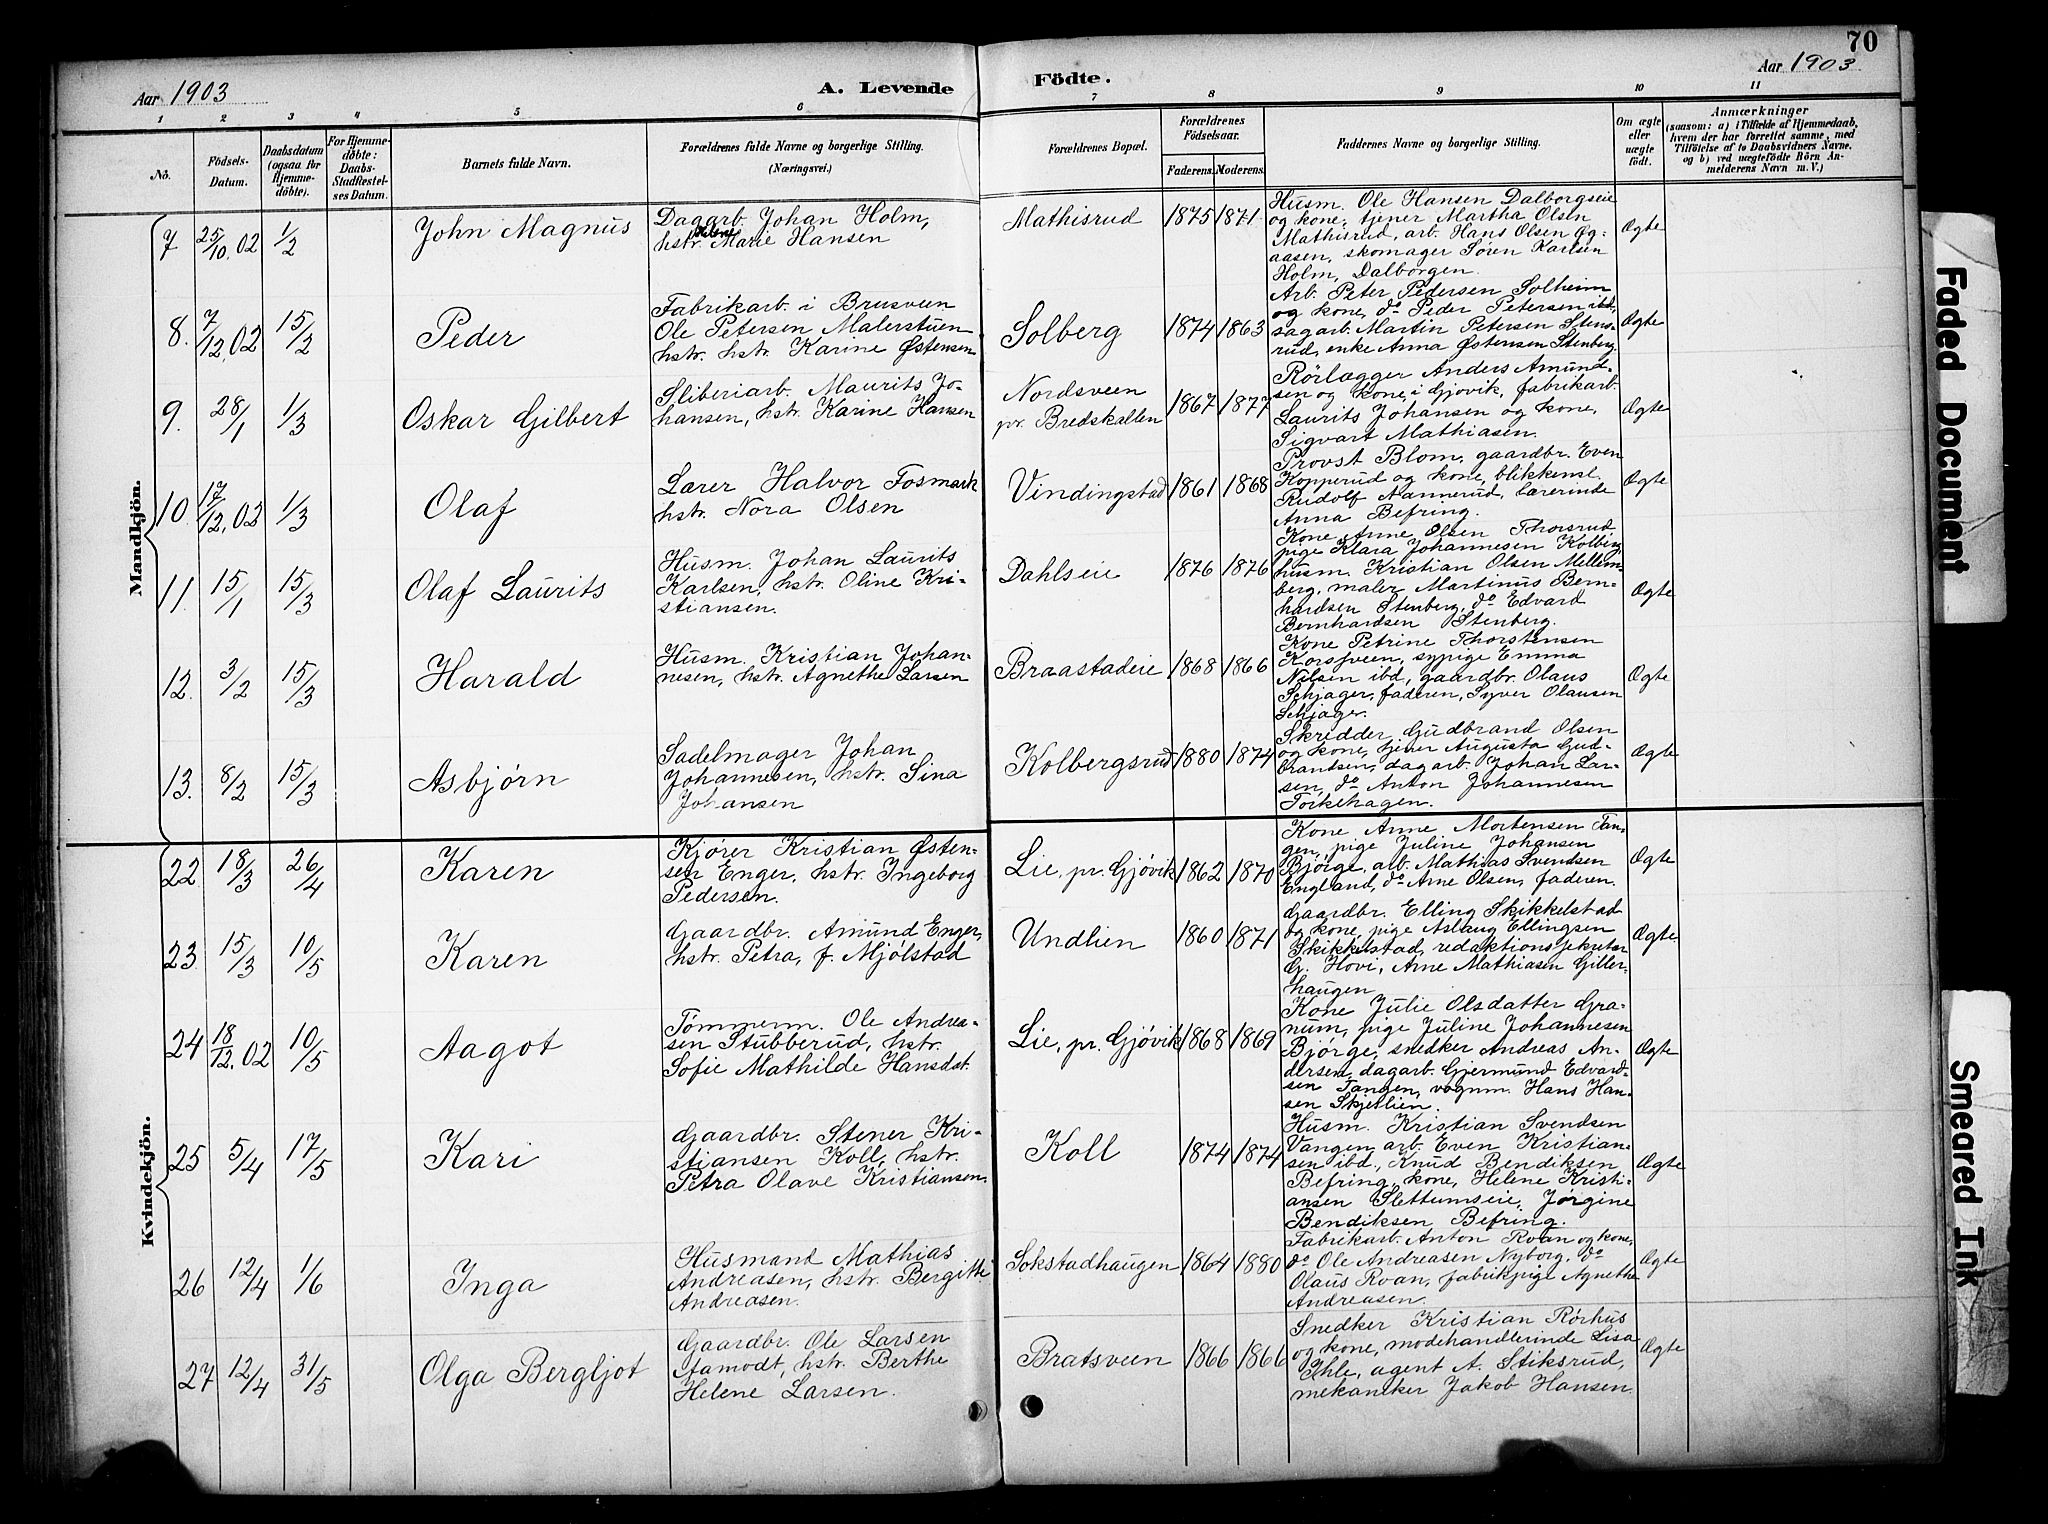 70
Aar 1903
A. Levende
Födte.
Aar 1903
1 2 3 4 5 6 7 8 9 10 11
No.
Födsels-
Datum.
Daabsdatum
(ogsaa for
Hjemme-
døbte).
For Hjemme-
døbte:
Daabs-
Stadfæstel-
ses Datum.
Barnets fulde Navn.
Forældrenes fulde Navne og borgerlige Stilling.
(Næringsvei.)
Forældrenes Bopæl.
Forældrenes
Födselsaar.
Faderens. Moderens.
Faddernes Navne og borgerlige Stilling.
Om ægte
eller
uægte
født.
Anmærkninger
(saasom: a) i Tilfælde af Hjemmedaab,
hvem der har forrettet samme, med
Tilföielse af to Daabsvidners Navne,
og b) ved uægtefödte Börn An-
melderens Navn m. V.)
Mandkjön.
7 25/10.02 1/2
John Magnus
Dagarb. Johan Holm,
Helene
hstr. Marie Hansen
Mathisrud 1875 1871
Husm. Ole Hansen Dalborgseie
og kone, tjener Martha Olsen
Mathisrud, arb. Hans Olsen Øg-
aasen, skomager Søren Karlsen
Holm, Dalborgen.
Ægte
8. 7/12.02 15/2
Peder
Fabrikarb. i Brusveen
Ole Petersen Malerstuen
hstr. hstr. Karine Østensen
Solberg 1874 1863
Arb. Peter Pedersen Solheim
og kone, do Peder Petersen ibd,
sagarb. Martin Petersen Stens-
rud, enke Anna Østensen Stenberg.
Ægte
9. 28/1 1/3
Oskar Gilbert
Sliberiarb. Maurits Jo-
hansen, hstr. Karine Hansen
Nordsveen
pr. Bredskallen
1867 1877
Rörlægger Anders Amund-
sen og kone, i Gjøvik, fabrikarb.
Laurits Johansen og kone,
Sigvart Mathiasen.
Ægte
10. 17/12.02 1/3
Olaf
Lærer Halvor Fosmark
hstr. Nora Olsen
Vindingstad 1861 1868
Provst Blom, gaardbr. Even
Kopperud og kone, blikkensl.
Rudolf Nannerud, Lærerinde
Anna Befring.
Ægte
11. 15/1 15/3
Olaf Laurits
Husm. Johan Laurits
Karlsen, hstr. Oline Kri-
stiansen.
Dahlseie 1876 1876
Kone Anne Olsen Thorsrud
pige Klara Johannesen Kolberg,
husm. Kristian Olsen Mellem-
berg, maler Martinus Bern-
hardsen Stenberg, do Edvard
Bernhardsen Stenberg.
Ægte
12. 3/2 15/3
Harald
Husm. Kristian Johan-
nesen, hstr. Agnethe Larsen
Braastadeie 1868 1866
Kone Petrine Thorstensen
Korsfveen, sypige Emma
Nilsen ibd, gaardbr. Olaus
Schjager, faderen, Syver Olausen
Schjager.
Ægte
13. 8/2 15/3
Asbjørn
Sadelmager Johan
Johannesen, hstr. Sina
Johansen
Kolbergsrud 1880 1874
Skrædder Gudbrand Olsen
og kone, tjener Augusta Gud-
brandsen, dagarb. Johan Lar-
sen, do Anton Johannesen
Torkehagen.
Ægte
Kvindekjön.
22 18/3 26/4
Karen
Kjører Kristian Østen-
sen Enger, hstr. Ingeborg
Pedersen.
Lie, pr. Gjøvik 1862 1870
Kone Anne Mortensen Tan-
gen, pige Juline Johansen
Bjørge, arb. Mathias Svendsen
England, do Arne Olsen, faderen.
Ægte
23. 15/3 10/5
Karen
Gaardbr. Amund Enger,
hstr. Petra, f. Mjølstad
Undlien 1860 1871
Gaardbr. Elling Skikkelstad
og kone, pige Aslaug Ellingsen
Skikkelstad, redaktionssekretær
G. Hovi, Arne Mathiasen Giller-
haugen
Ægte
24 18/12.02 10/5
Aagot
Tømmerm. Ole Andrea-
sen Stubberud, hstr.
Sofie Mathilde Hansdat.
Lie, pr. Gjøvik 1868 1869
Kone Julie Olsdatter Gra-
num, pige Juline Johannesen
Bjørge, snedker Andreas An-
dersen, dagarb. Gjermund Edvard-
sen Tangen, vognm. Hans Han-
sen Skjetlien.
Ægte
25 5/4 17/5
Kari
Gaardbr. Stener Kri-
stiansen Koll, hstr.
Petra Olave Kristiansen.
Koll 1874 1874
Husm. Kristian Svendsen
Vangen, arb. Even Kristian-
sen ibd., Knud Bendiksen
Befring, kone, Helene Kristi-
ansen Slettumseie, Jørgine
Bendiksen Befring.
Ægte
26 12/4 1/6
Inga
Husmand Mathias
Andreasen, hstr. Bergitte
Andreasen.
Sokstadhaugen 1864 1880
Fabrikarb. Anton Roan og kone,
do Ole Andreasen Nyborg, do
Olaus Roan, fabrikpige Agnethe
Andreasen.
Ægte
27 12/4 31/5
Olga Bergljot
Gaardbr. Ole Larsen
Famodt, hstr. Berthe
Helene Larsen.
Bratsveen 1866 1866
Snedker Kristian Rørhus
og kone, modehandlerinde Lisa
Ihle, agent A. Stiksrud,
mekaniker Jakob Hansen.
Ægte
Faded Document
Smeared Ink